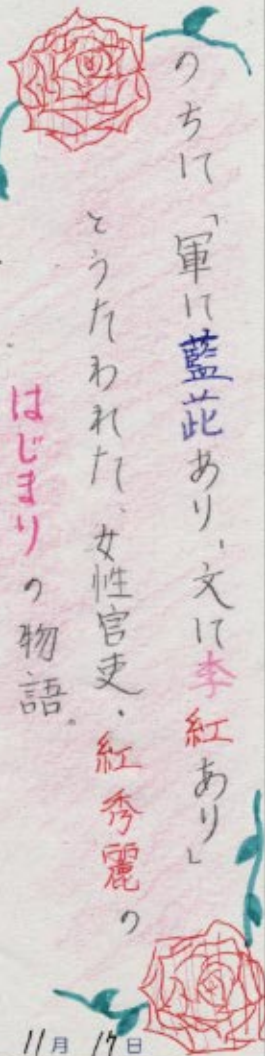 のちに「軍に藍茈あり、文に李紅あり」
とうたわれた、女性官吏・紅秀麗の
はじまりの物語。
11月17日